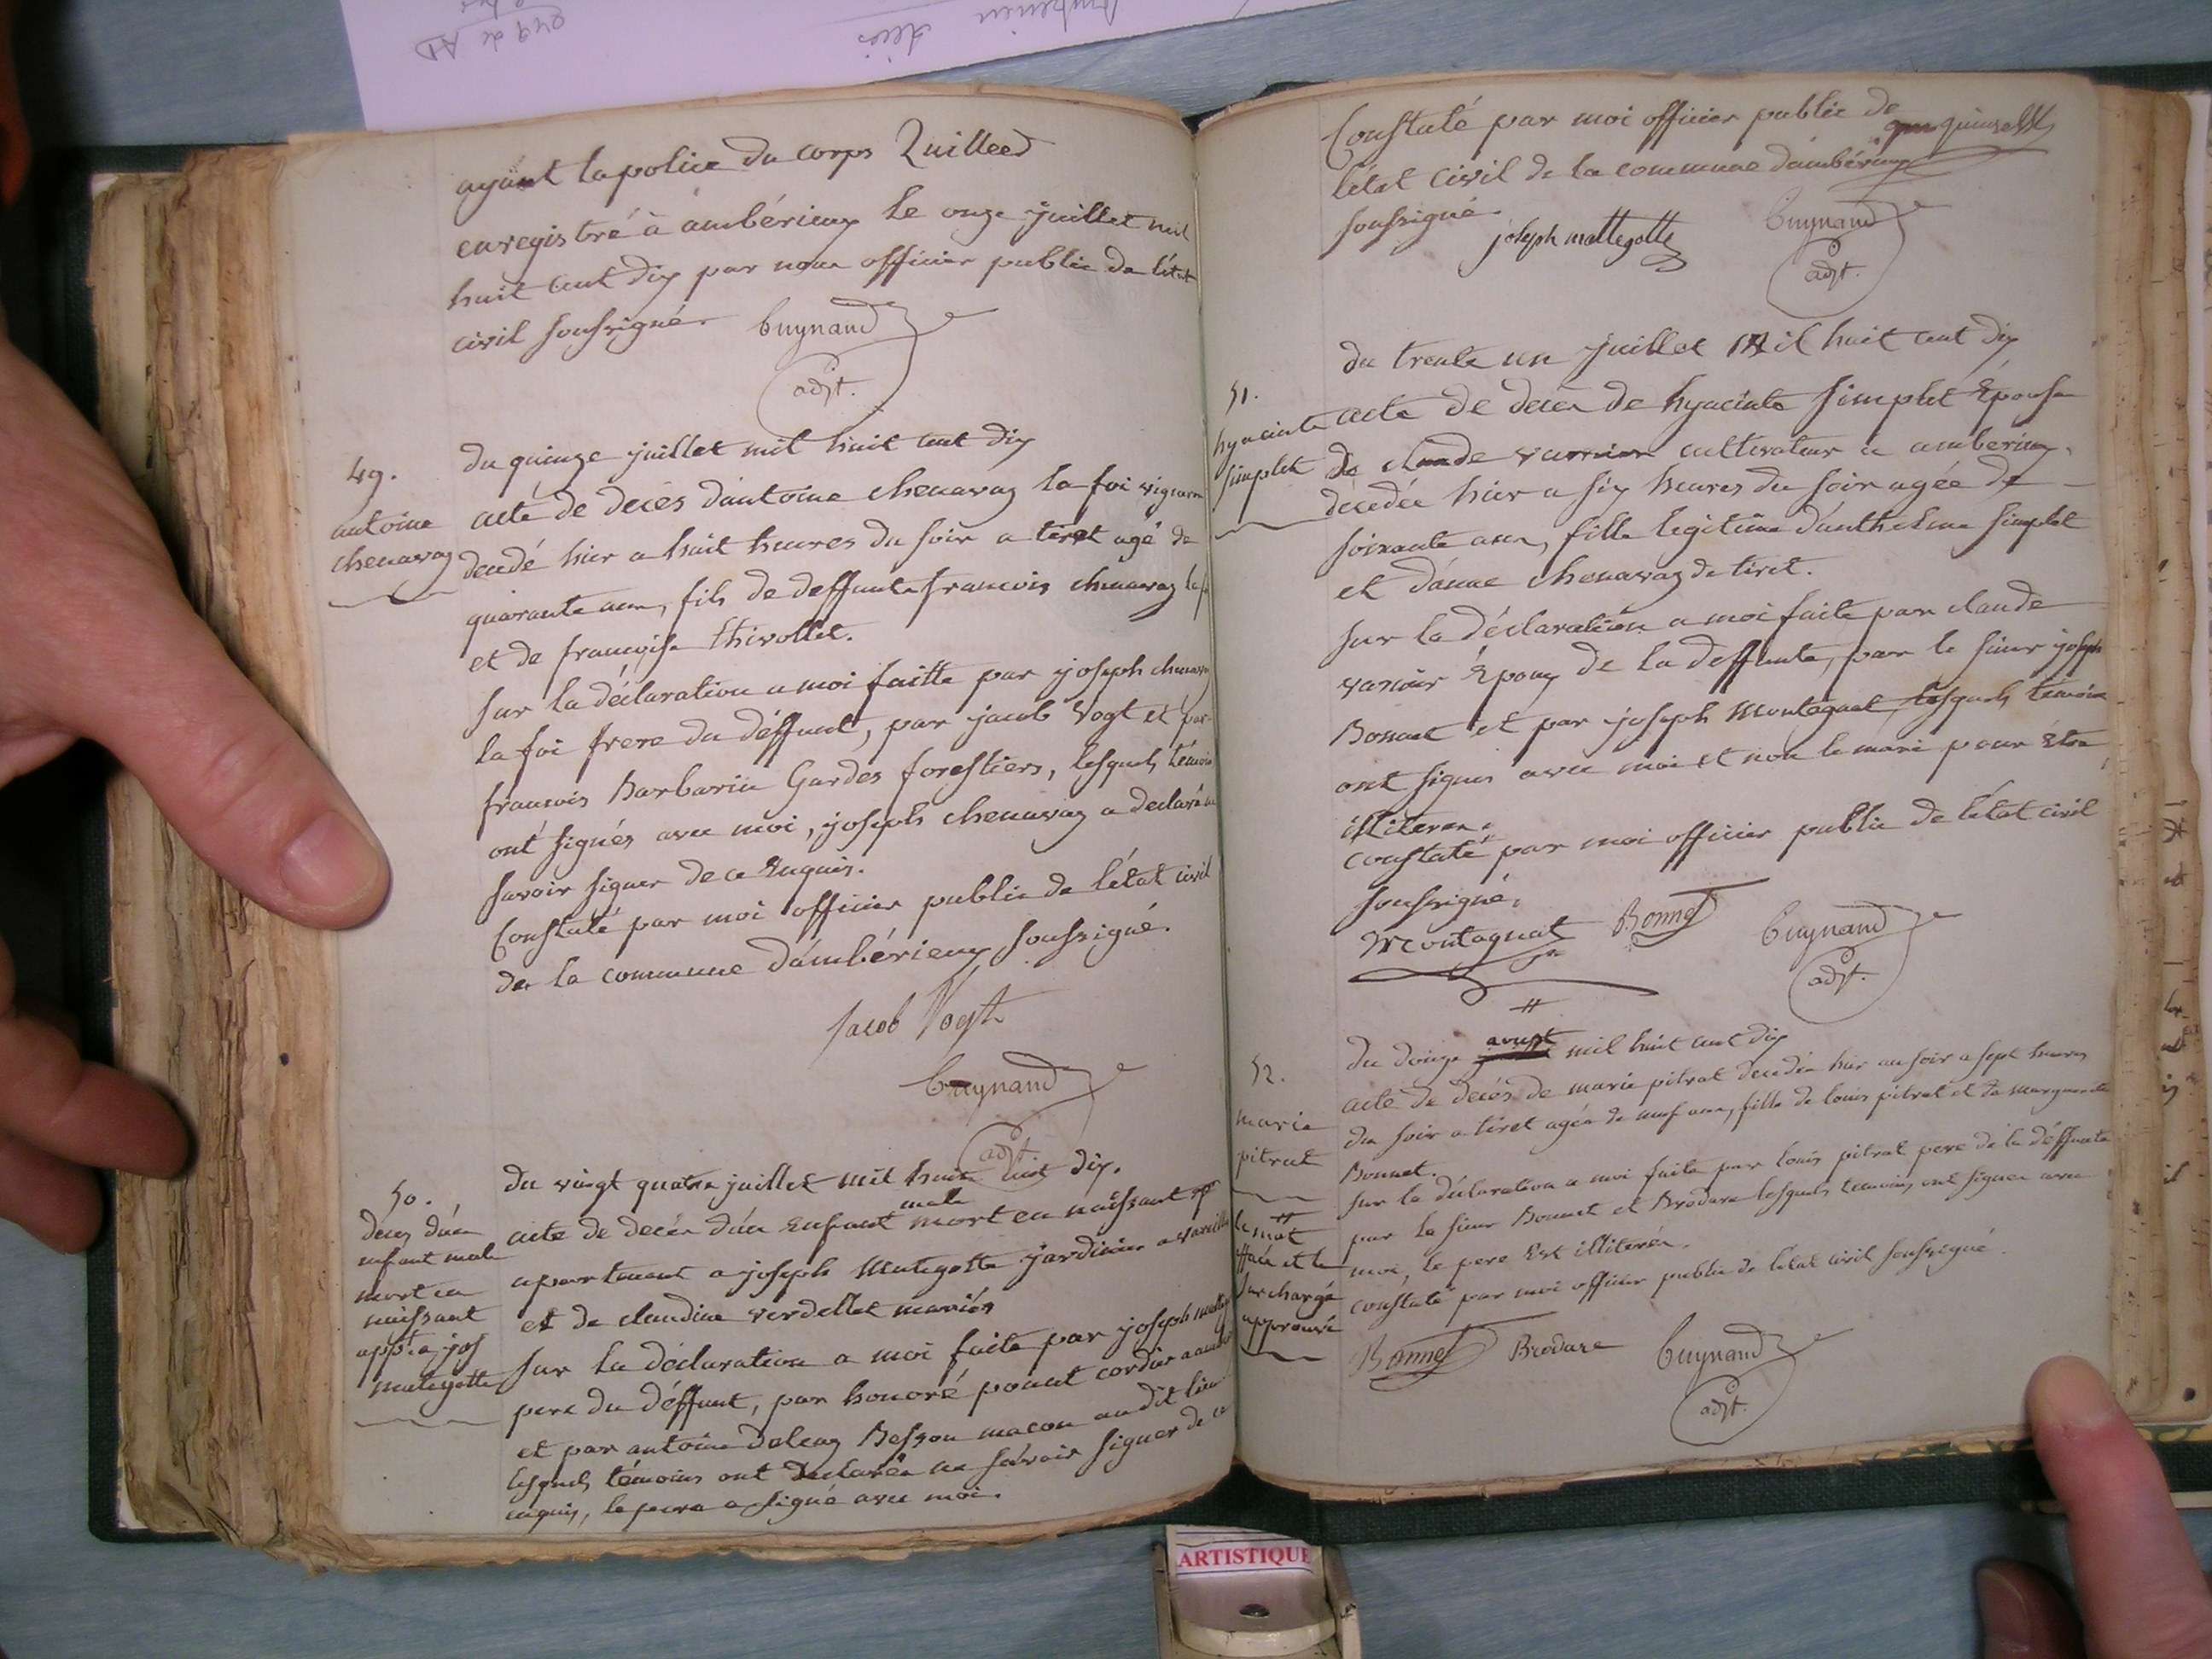 ayant la police du corps Quilleed
enregistré à ambérieux le onze juillet mil
huit cent dix par nous officier public de l'état
civil soussigné.
Cuynand
adjt.
du quinze juillet mil huit cent dix
49.
antoine
chenavaz
acte de decès d'antoine chenavaz la foi vigneron
decedé hier a huit heures du soir a tiret agé de
quarante ans, fils de deffunts francois chenavaz
et de françoise thivollet.
sur la déclaration a moi faitte par joseph chenavaz
la foi frere du déffunt, par jacob Vogt et par
francois Barbarin Gardes forestiers, lesquels témoins
ont signés avec moi, joseph chenavaz a declaré ne
savoir signer de ce Enquis.
Constaté par moi officier public de l'état civil
de la commune d'ambérieux soussigné.
Jacob Vogt
Cuynand
adjt.
du vingt quatre juillet mil huit cent dix.
50.
deces d'un
enfant male
mort en
naissant
appt. a jos
mategotte
acte de decès d'un Enfant male mort en naissant
apartenant a joseph Mategotte jardinier a
et de claudine verdellet mariés
sur la déclaration a moi faite par joseph
pere du déffunt, par honoré ponat cordier a
et par antoine Besson macon au dit lieu
lesquels témoins ont declarés ne savoir signer de ce
enquis, le pere a signé avec moi.
Constaté par moi officier public de
l'état civil de la commune d'ambérieux
soussigné.
joseph mattegotte
Cuynand
adjt.
du trente un juillet Mil huit cent dix
51.
hyacinte
simplet
acte de decès de hyacinte simplet Épouse
de claude varnier cultivateur a amberieux.
décédée hier a six heures du soir agée de
soixante ans, fille legitime d'anthelme simplet
et d'anne chenavaz de tiret.
sur la déclaration a moi faite par claude
Époux de la deffunte, par le sieur joseph
Bonnet et par joseph Montagnat, lesquels témoins
ont signés avec moi et non le mari pour être
illiteré.
constaté par moi officier public de l'état civil
soussigné.
Montagnat
Bonnet
Cuynand
adjt.
#
du douze aoust mil huit cent dix
52.
marie
pitrat
acte de decés de marie pitrat decedée hier au soir a sept heures
du soir a tiret agée de neuf ans, fille de louis pitrat et de marguerite
Bonnet.
sur la déclaration a moi faite par louis pitrat pere de la déffunte
par le sieur Bonnet et Brodare lesquels temoins ont signer avec
moi, le pere Est illiteré.
constaté par moi officier public de l'état civil soussigné.
#
le mot
effacé et le
surchargé
approuvé
Bonnet
Brodare
Cuynand
adjt.
ARTISTIQUE